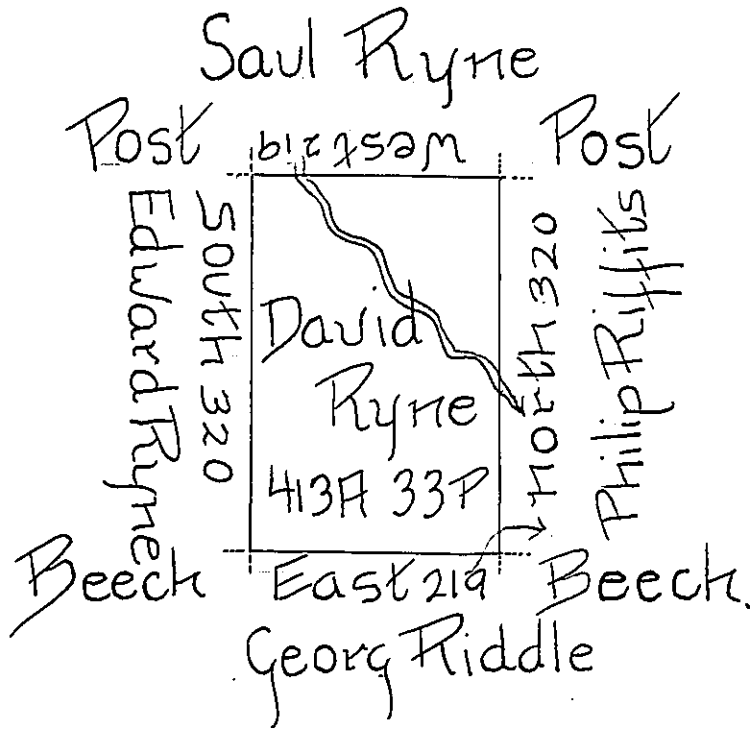 Saul Ryne
Post
West 219
Post
Edward Ryne
South 320
David
Ryne
413A 33P
North 320
Philip Riffits
Beech
East 219
Beech.
Georg Riddle